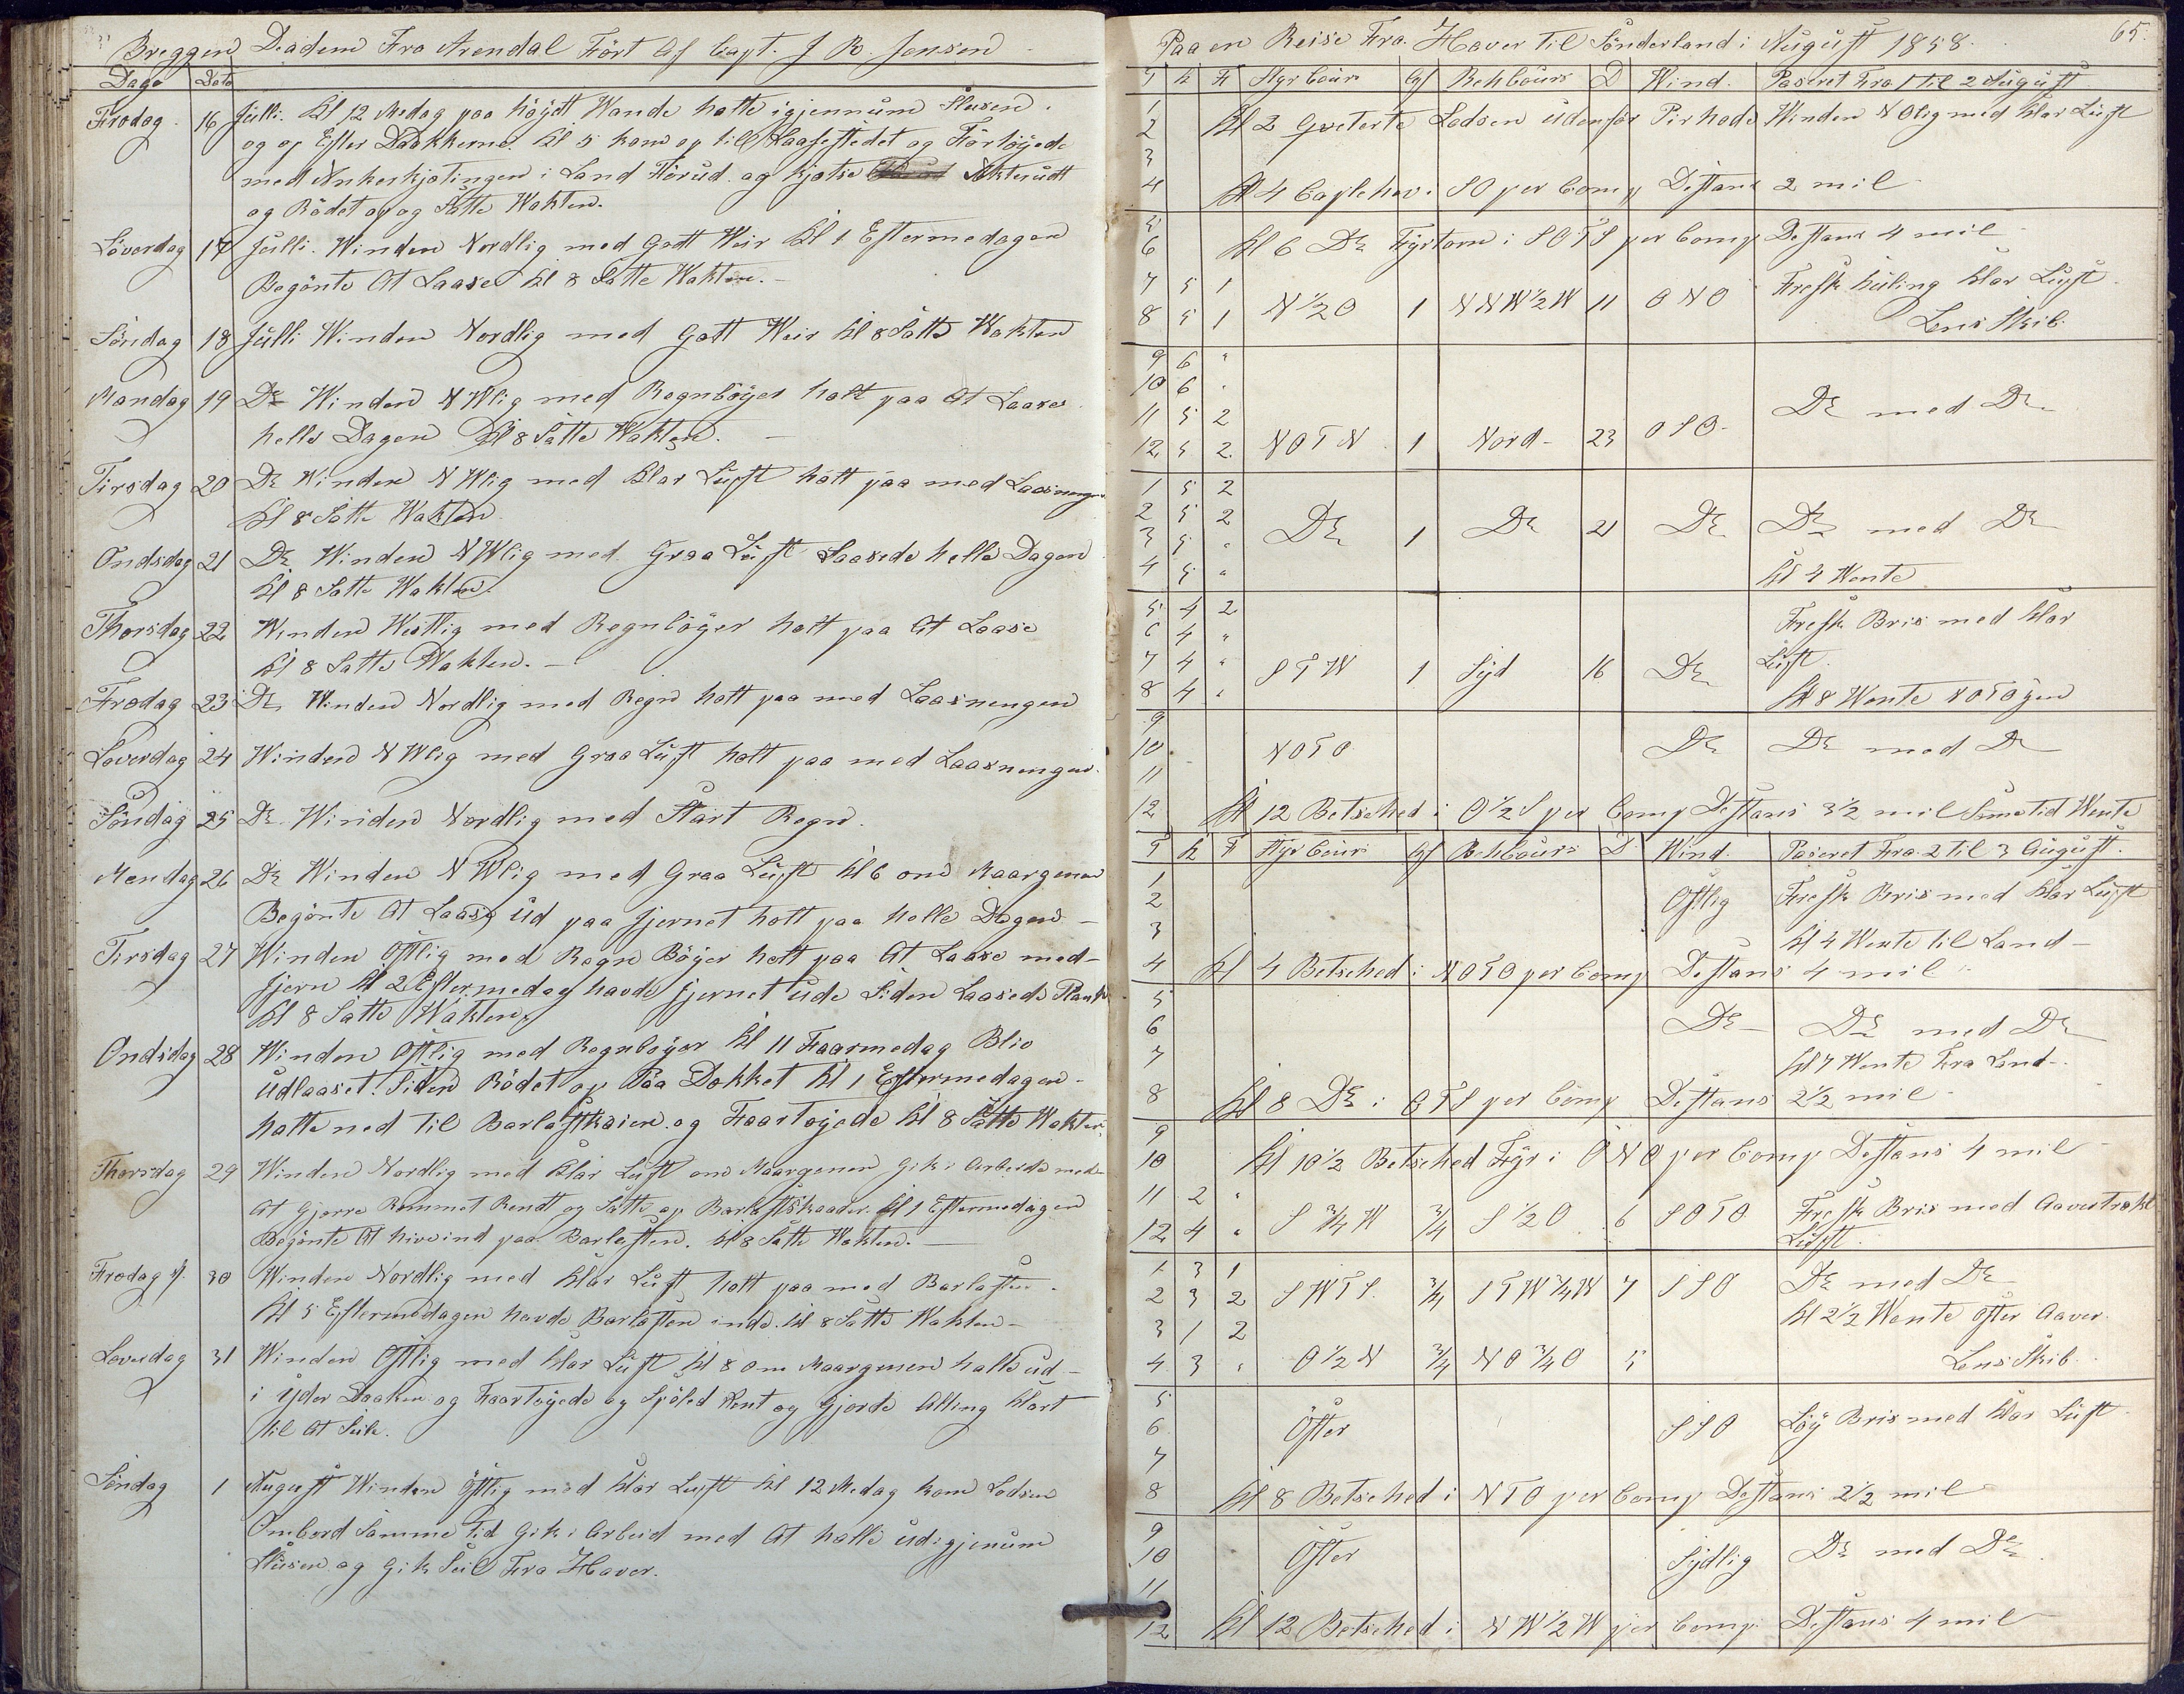 Breggen Diadem Fra Arendal Fört Af Capt. J R. Jensen
Dage Dato
Fredag 16 Julli. Kl 12 Medag paa höydt Wande halte igjennum Slusen.
og op Efter Dokkerne. Kl 5 kom op til Laasestedet og Förtöyede
med Ankerkjetingen i Land Förud. og kjætse Akterudt
og Rödet op og Satte Wakten.
Löverdag 17 Julli. Winden Nordlig med Godt Weir Kl 1 Eftermedagen
Begönte At Laase Kl 8 Satte Wakten.-
Söndag 18 Julli Winden Nordlig med Gott Weir Kl 8 Satte Wakten
Mandag 19 Do Winden NWlig med Regnböyer holt paa At Laase
helle Dagen Kl 8 Satte Wakten.-
Tirsdag 20 Do Winden NWlig med Klar Luft holt paa med Laasningen
Kl 8 Satte Wakten.
Ondsdag 21 Do Winden NWlig med Graa Luft Laasede helle Dagen
Kl 8 Satte Wakten.
Thorsdag 22 Winden Westlig med Regnböyer holt paa At Laase
Kl 8 Satte Wakten.-
Fredag 23 Do Winden Nordlig med Regn holt paa med Laasnengen
Löverdag 24 Winden NWlig med Graa Luft holt paa med Laasnengen.
Söndag 25 Do Winden Nordlig med Start Regn.
Mandag 26 Do Winden NWlig med Graa Luft Kl 6 om Maargenen
Begönte At Laase Ud paa Jernet holt paa helle Dagen-
Tirsdag 27 Winden Östlig med Regn Böyer holt paa At Laase med-
Jern Kl 2 Eftermedag havde Jernet ude Siden Laasede Plank
Kl 8 Satte Wakten.
Ondsdag 28 Winden Östlig med Regnböyer Kl 11 Faarmedag Blev
Udlaaset. Siden Rödet op Paa Dekket Kl 1 Eftermedagen-
halte ned til Barlastkaien. og Faartöyede Kl 8 Satte Wakten.
Thorsdag 29 Winden Nordlig med Klar Luft om Maargenen Gik i Arbeide med
At Gjørre Rummet Rendt og Satte op Barlastskaader. Kl 1 Eftermedagen
Begönte At hive ind paa Barlasten. Kl 8 Satte Wakten.-
Fredag 30 Winden Nordlig med Klar Luft holt paa med Barlasten.
Kl 5 Eftermedagen havde Barlasten inde. Kl 8 Satte Wakten-
Löverdag 31 Winden Östlig med Klar Luft Kl 8 om Maargenen halte ud-
i yder Dokken og Faartöyede og Spöled Rent og Gjorde Alting Klart
til At Seile.
Söndag 1 August Winden Östlig med Klar Luft Kl 12 Medag kom Lodsen
Ombord Samme Tid Gik i Arbeid med At halle ud igjenum
Slusen og Gik Seil Fra Haver.
65.
Paa en Reise Fra. Haver til Sönderland i August 1858.
T K F Styr Cours Af Behcours D Wind. Paseret Fra 1 til 2 August
1
2 Kl 2 Qviterte Lodsen Udenför Pirhode Winden NOlig med Klar Luft
3
4 Kl 4 Caplehev i SO per Comp Destans 2 mil
5
6 Kl 6 Do Fyrtorn i SOTS per Comp Destans 4 mil
7 5 1 Fresk Kuling Klar Luft
8 5 1 N 1/2 O 1 NNW 1/2 W 11 ONO Lens Skib.
9 6 "
10 6 "
11 5 2 Do med Do
12 5 2 NOTN 1 Nord- 23 OSO-
1 5 2
2 5 2 Do 1 Do 21 Do Do med Do
3 5 "
4 5 " Kl 4 Wente
5 4 2 Fresk Bris med Klar
6 4 "
7 4 " STW 1 Syd 16 Do Luft.
8 4 " Kl 8 Wente NOTO gen
9
10 NOTO Do Do med Do
11
12 Kl 12 Betsehed i O 1/2 S per Comp Destans 3 1/2 mil Sametid Wente
T K F Styr Cours Af Behcours D Wind. Paseret Fra 2 til 3 August.
1
2 Östlig Fresk Bris med Klar Luft
3 Kl 4 Wente til Land-
4 Kl 4 Betsehed i NOTO per Comp Destans 4 mil
5
6 Do- Do med Do
7 Kl 7 Wente Fra Land-.
8 Kl 8 Do i OTS per Comp Destans 2 1/2 mil
9
10 Kl 10 1/2 Betsehed Fyr i ONO per Comp Destans 4 mil
11 2 " Fresk Bris med Aavertrækt
12 4 " S 3/4 W 3/4 S 1/2 O 6 SOTO Luft.
1 3 1
2 3 2 SWTS. 3/4 STW 3/4 W 7 SSO Do med Do
3 1 2 Kl 2 1/2 Wente Öster Aaver.
4 3 " O 1/2 N 3/4 NO 3/4 O 5 Lens Skib.
5
6 Öster SSO Löy Bris med Klar Luft
7
8 Kl 8 Betsehed i NTO per Comp Destans 2 1/2 mil
9
10 Öster Sydlig Do med Do
11
12 Kl 12 Betsehed i NW 1/2 W per Comp. Destans 4 mil